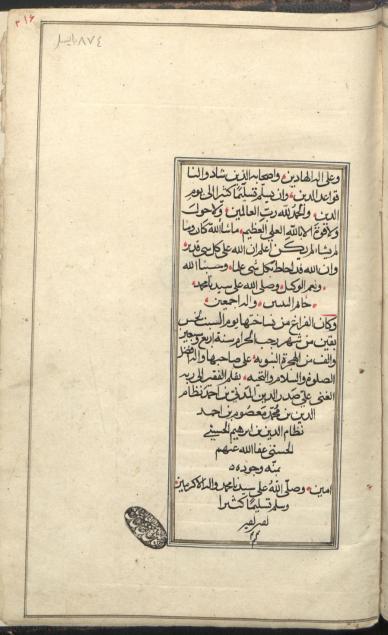 ٣١٦
٨٧٤
وعلى آله الهادين واصحابه الذين شادوا لنا
قواعد الدين وان يسلم تسليمًا كثيرا الى يوم
الدين والحمد لله رب العالمين ولا حول
ولا قوة الا بالله العلي العظيم ماشاء الله كان وما
لم يشاء لم يكن اعلم ان الله على كل شي قدير
وان الله قد احاط بكل شي علما وحسبنا الله
ونعم الوكيل وصلى الله على سيدنا محمد
خاتم النبيين واله اجمعين
وكان الفراغ من نساختها يوم السبت لخمس
بقين من شهر رجب الحرام سنة اربع وسبعين
والف من الهجرة النبويه على صاحبها واله افضل
الصلوة والسلام والتحيه بقلم الفقير الى ربه
الغني علي صدر الدين المدني بن احمد نظام
الدين بن محمد معصوم بن احمد
نظام الدين بن ابرهيم الحسيني
الحسني عفا الله عنهم
بمنه وجوده
امين وصلى الله على سيدنا محمد واله الاكرمين
وسلم تسليمًا كثيرا